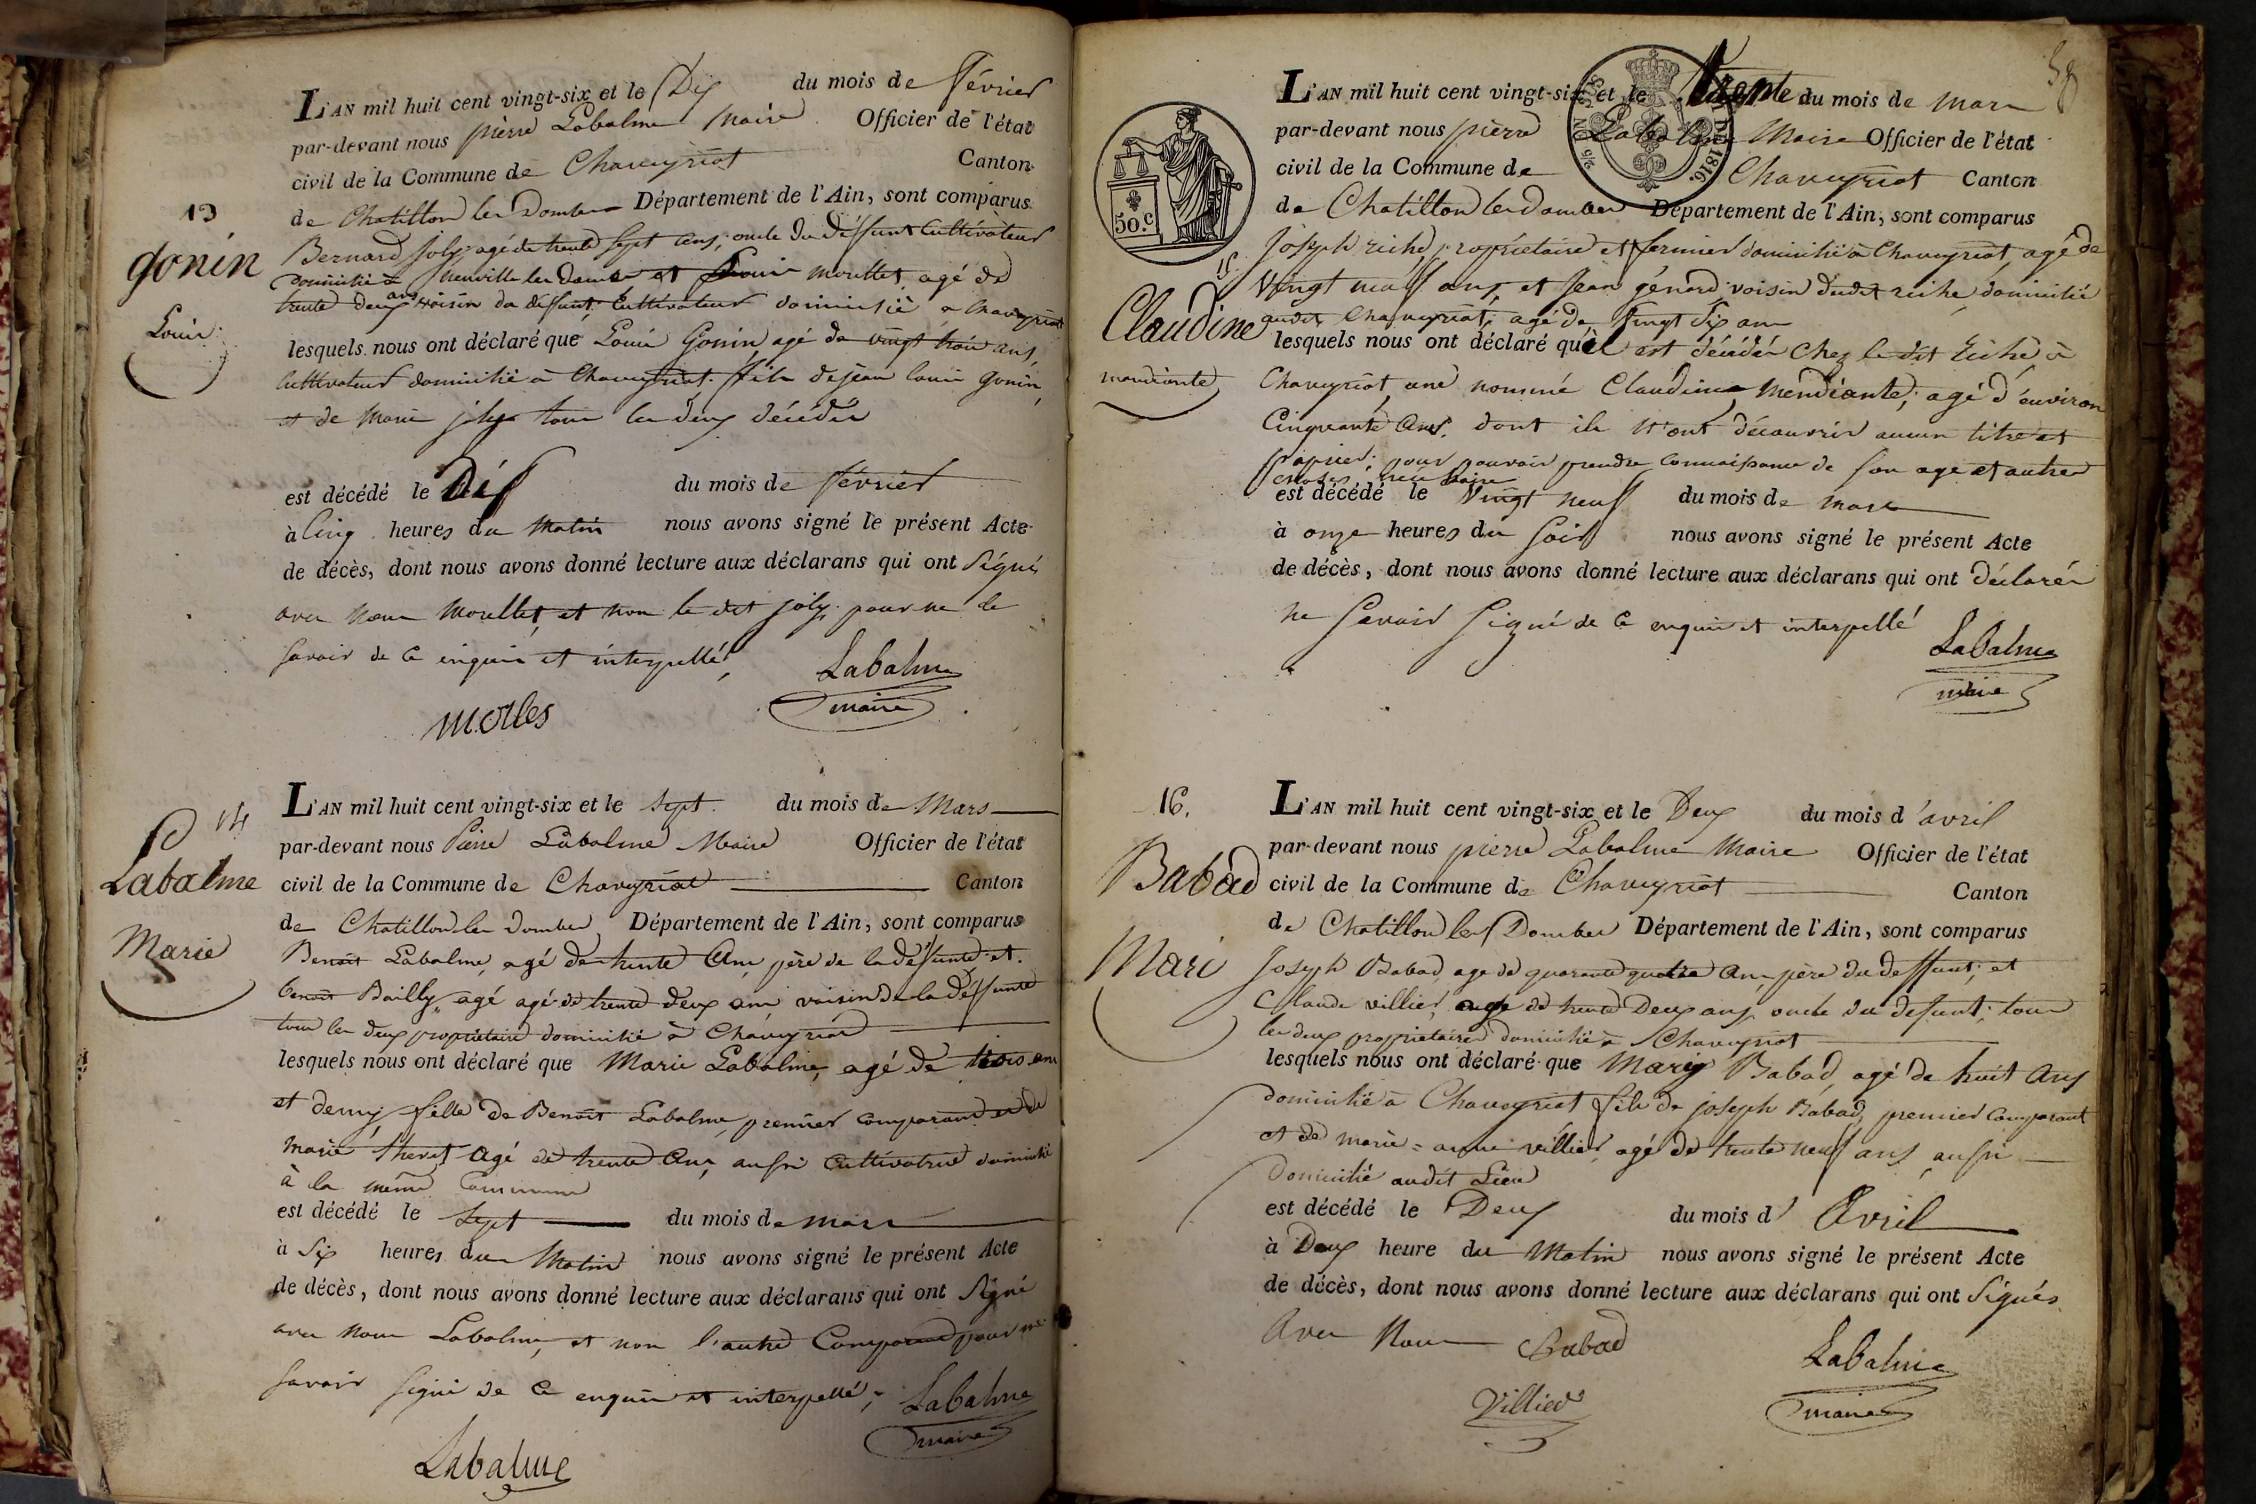 13
gonin
Louis
L'AN mil huit cent vingt-six et le Dix du mois de février
par-devant nous pierre Labalme Maire Officier de l'état
civil de la Commune de Chaveyriat Canton
de Chatillon les Dombes Département de l'Ain, sont comparus
Bernard joly agé de trente sept ans, oncle du deffunt Cultivateur
domicilié à Neuville les Dames et Louis morellet agé de
trente deux ans voisin du défunt Cultivateur domicilié a Chaveyriat
lesquels nous ont déclaré que Louis Gonin agé de vingt trois ans,
Cultivateur domicilié à Chaveyriat fils de jean louis gonin,
et de Marie joly tous les deux décédés
est décédé le Dix du mois de février
à Cinq heures du Matin nous avons signé le présent Acte
de décès, dont nous avons donné lecture aux déclarans qui ont signé
avec nous Morellet, et non le dit joly pour ne le
savoir de ce enquis et interpellé,
Labalme
maire
morles
14
Labalme
Marie
L'AN mil huit cent vingt-six et le sept du mois de Mars
par-devant nous Pierre Labalme Maire Officier de l'état
civil de la Commune de Chaveyriat Canton
de Chatillon les Dombes Département de l'Ain, sont comparus
Benoit Labalme, agé de trente Ans, père de la défunte et
benoit Bailly agé agé de trente deux ans voisin de la déffunte
tous les deux propriétaire domicilié à Chaveyriat
lesquels nous ont déclaré que Marie Labalme, agé de trois ans
et demy, fille de Benoit Labalme, premier comparant et de
marie therat agé de trente Ans, aussi Cultivatrice domicilié
à la même Commune
est décédé le sept du mois de mars
à Six heures du Matin nous avons signé le présent Acte
de décès, dont nous avons donné lecture aux déclarans qui ont Signé
avec nous Labalme, et non l'autre Comparant pour ne
savoir signé de ce enquis et interpellé,
Labalme
maire
Labalme
58
50.c
DE 1816.
15
Claudine
mandiante
L'AN mil huit cent vingt-six et le trente du mois de mars
par-devant nous pierre Labalme Maire Officier de l'état
civil de la Commune de Chaveyriat Canton
de Chatillon les dombes Département de l'Ain, sont comparus
joseph riche, propriétaire et fermier domicilié à Chaveyriat, agé de
vingt neuf ans, et jean génard voisin dudit riche, domicilié
audit Chaveyriat, agé de Vingt Six ans
lesquels nous ont déclaré qu'el est décédée chez le dit riche à
Chaveyriat, une nommé Claudine Mendiante, agé d'environ
Cinquante Ans, dont ils n'ont découvrir aucun titre et
papier, pour pouvoir prendre connaissance de son age et autres
choses nécessaire
est décédé le Vingt neuf du mois de mars
à onze heures du soir nous avons signé le présent Acte
de décès, dont nous avons donné lecture aux déclarans qui ont déclarés
ne savoir signé de ce enquis et interpellé
Labalme
maire
16.
Babad
Mari
L'AN mil huit cent vingt-six et le Deux du mois d'avril
par-devant nous pierre Labalme Maire Officier de l'état
civil de la Commune de Chaveyriat Canton
de Chatillon les Dombes Département de l'Ain, sont comparus
Joseph Babad, age de quarante quatre Ans, père du deffunt, et
Claude villier, age de trente Deux ans, oncle du defunt, tous
les deux propriétaires domicilié à Chaveyriat
lesquels nous ont déclaré que Marie Babad, agé de huit Ans
domicilié à Chaveyriat fils de joseph Babad, premier comparant
et de marie = anne villier, agé de trente neuf ans, aussi
domicilié audit Lieu
est décédé le Deux du mois d' Avril
à Deux heure du Matin nous avons signé le présent Acte
de décès, dont nous avons donné lecture aux déclarans qui ont signés
Avec Nous Babad
Labalme
maire
Villier